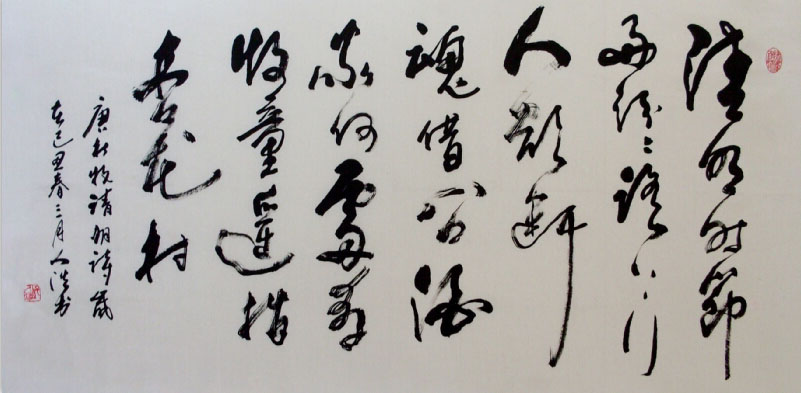 清明时节
雨纷纷路上行
人欲断
魂借问酒
家何处有
牧童遥指
杏花村
唐杜牧清明诗岁
在己丑春三月人书